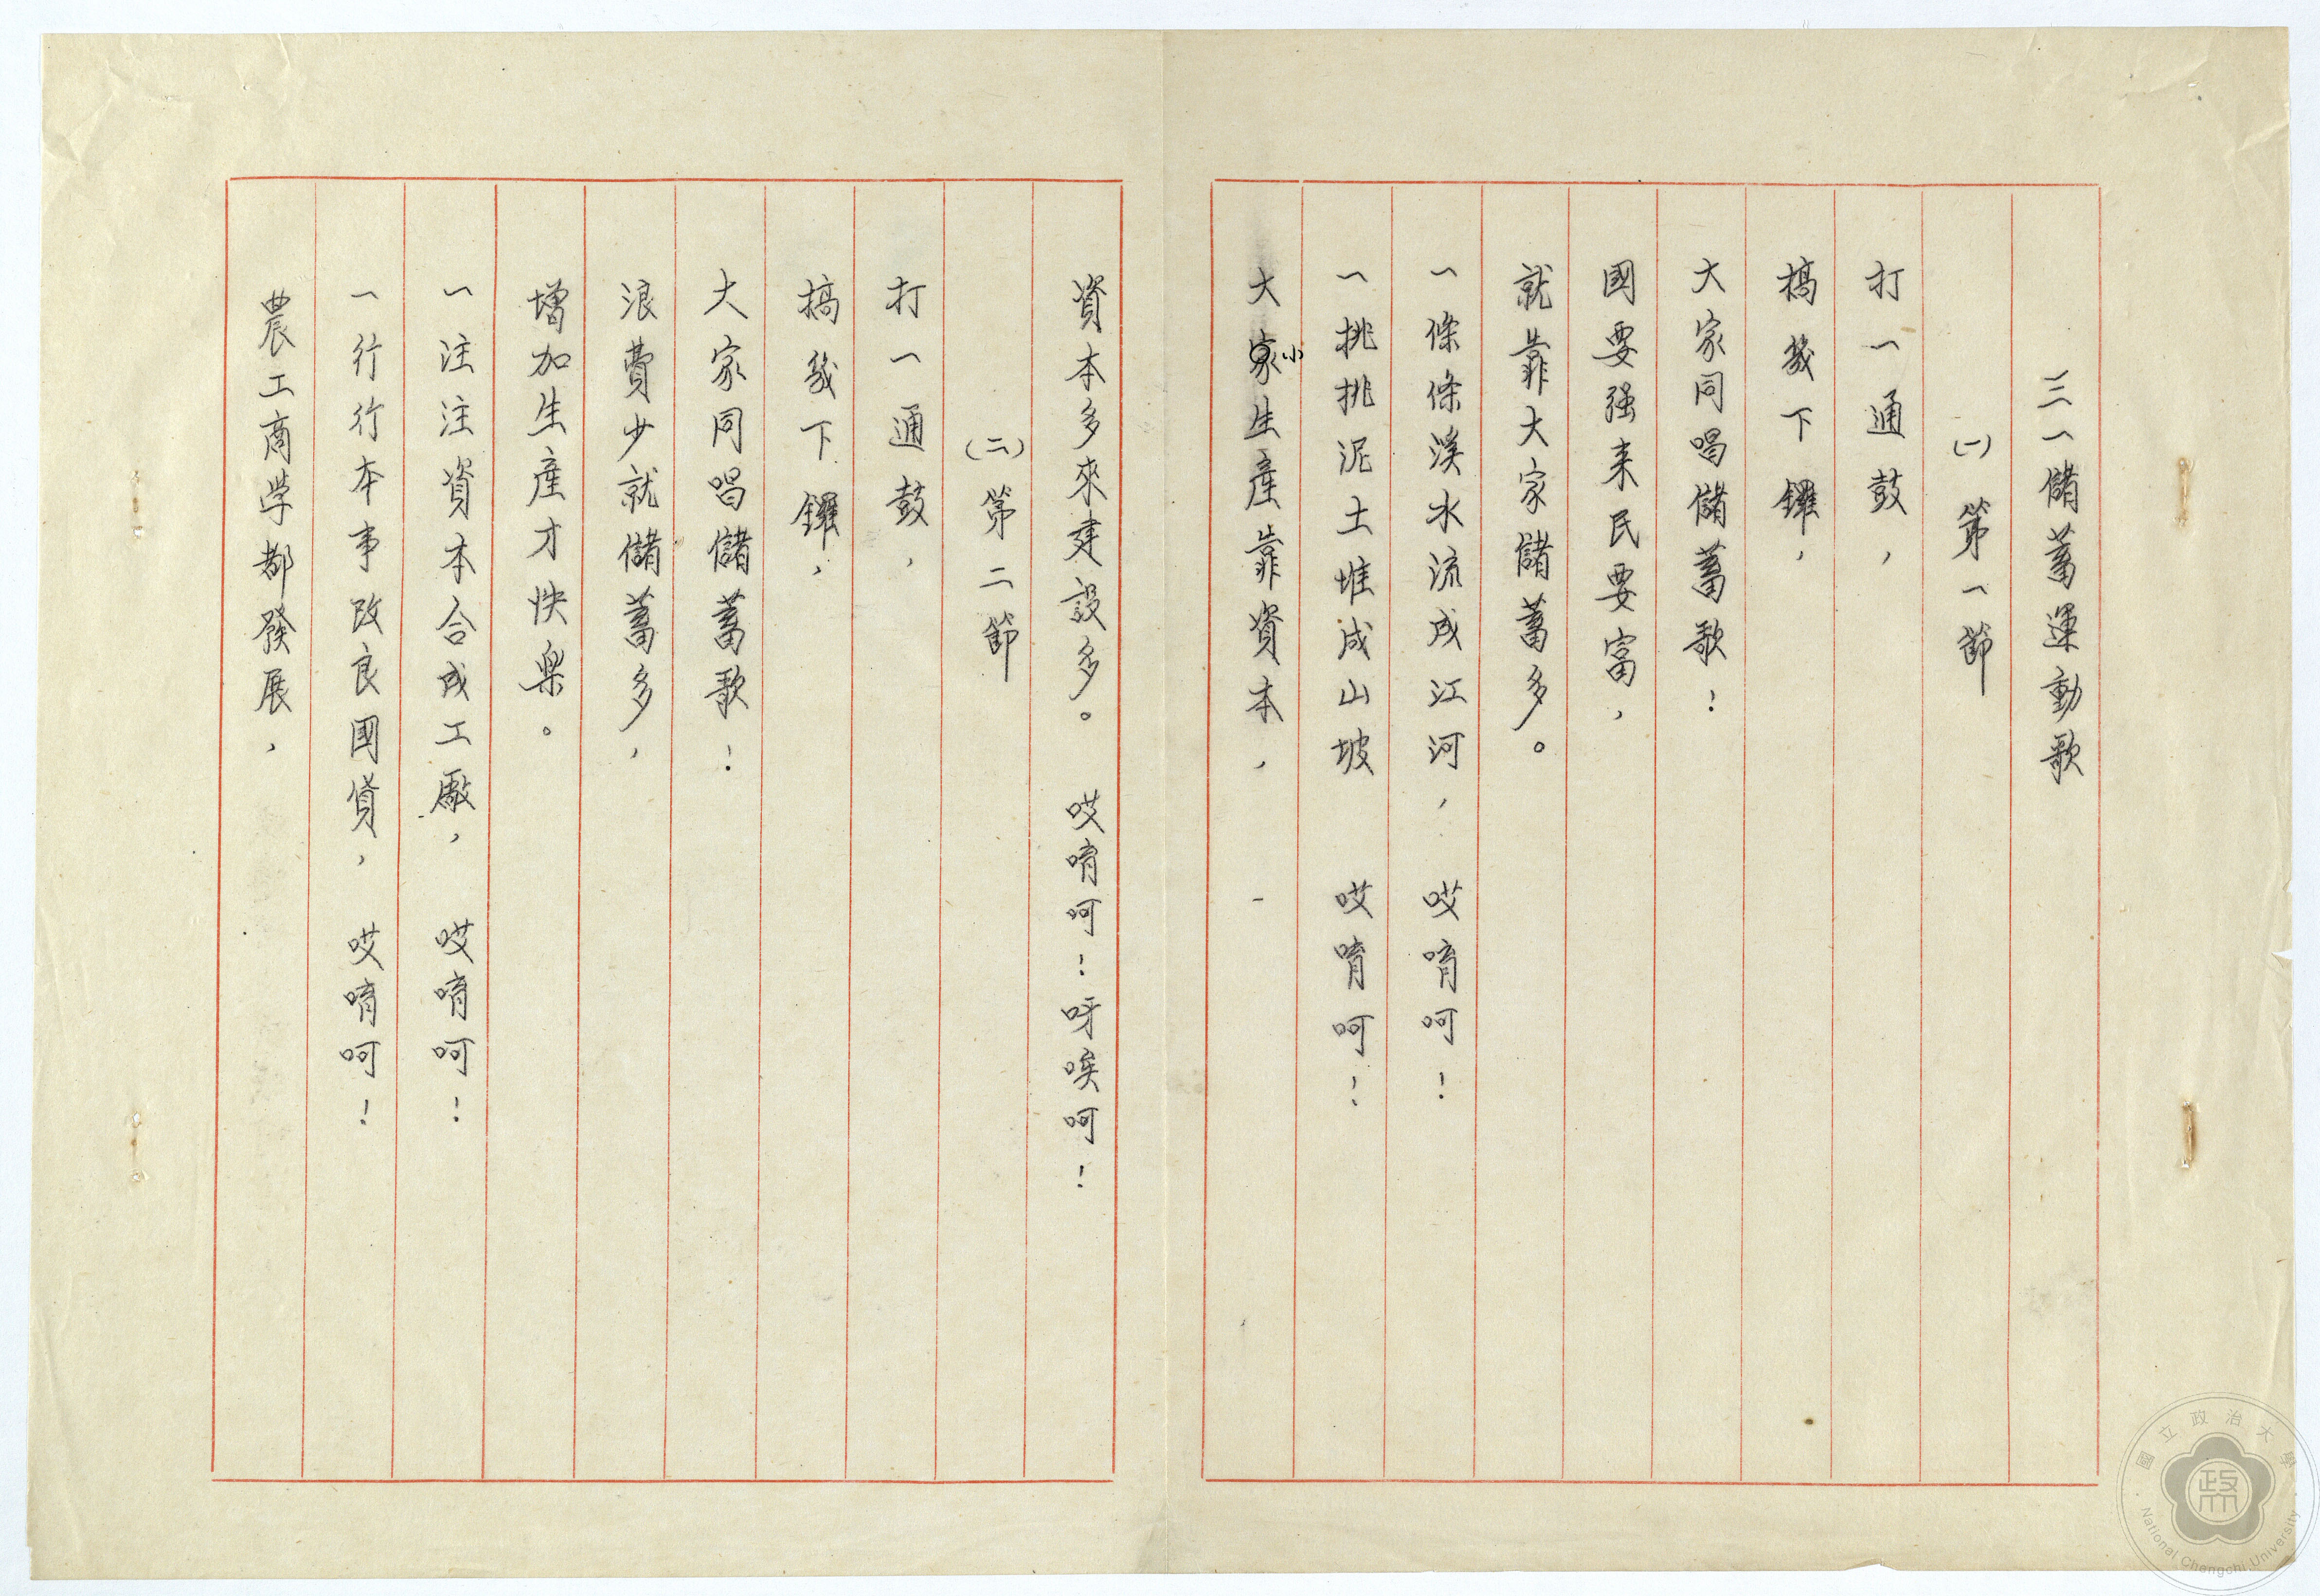 三一儲蓄運動歌
(一) 第一節
打一通鼓，
搞幾下鑼，
大家同唱儲蓄歌！
國要强来民要富，
就靠大家儲蓄多。
一條條溪水流成江河， 哎唷呵！
一挑挑泥土堆成山坡 哎唷呵！
大小生產靠資本，
資本多來建設多。 哎唷呵！呀唉呵！
(二) 第二節
打一通鼓，
搞幾下鑼，
大家同唱儲蓄歌！
浪費少就儲蓄多，
增加生產才快樂。
一注注資本合成工廠， 哎唷呵！
一行行本事改良國貨， 哎唷呵！
農工商学都發展，
國立政治大學
政
National Chengchi University